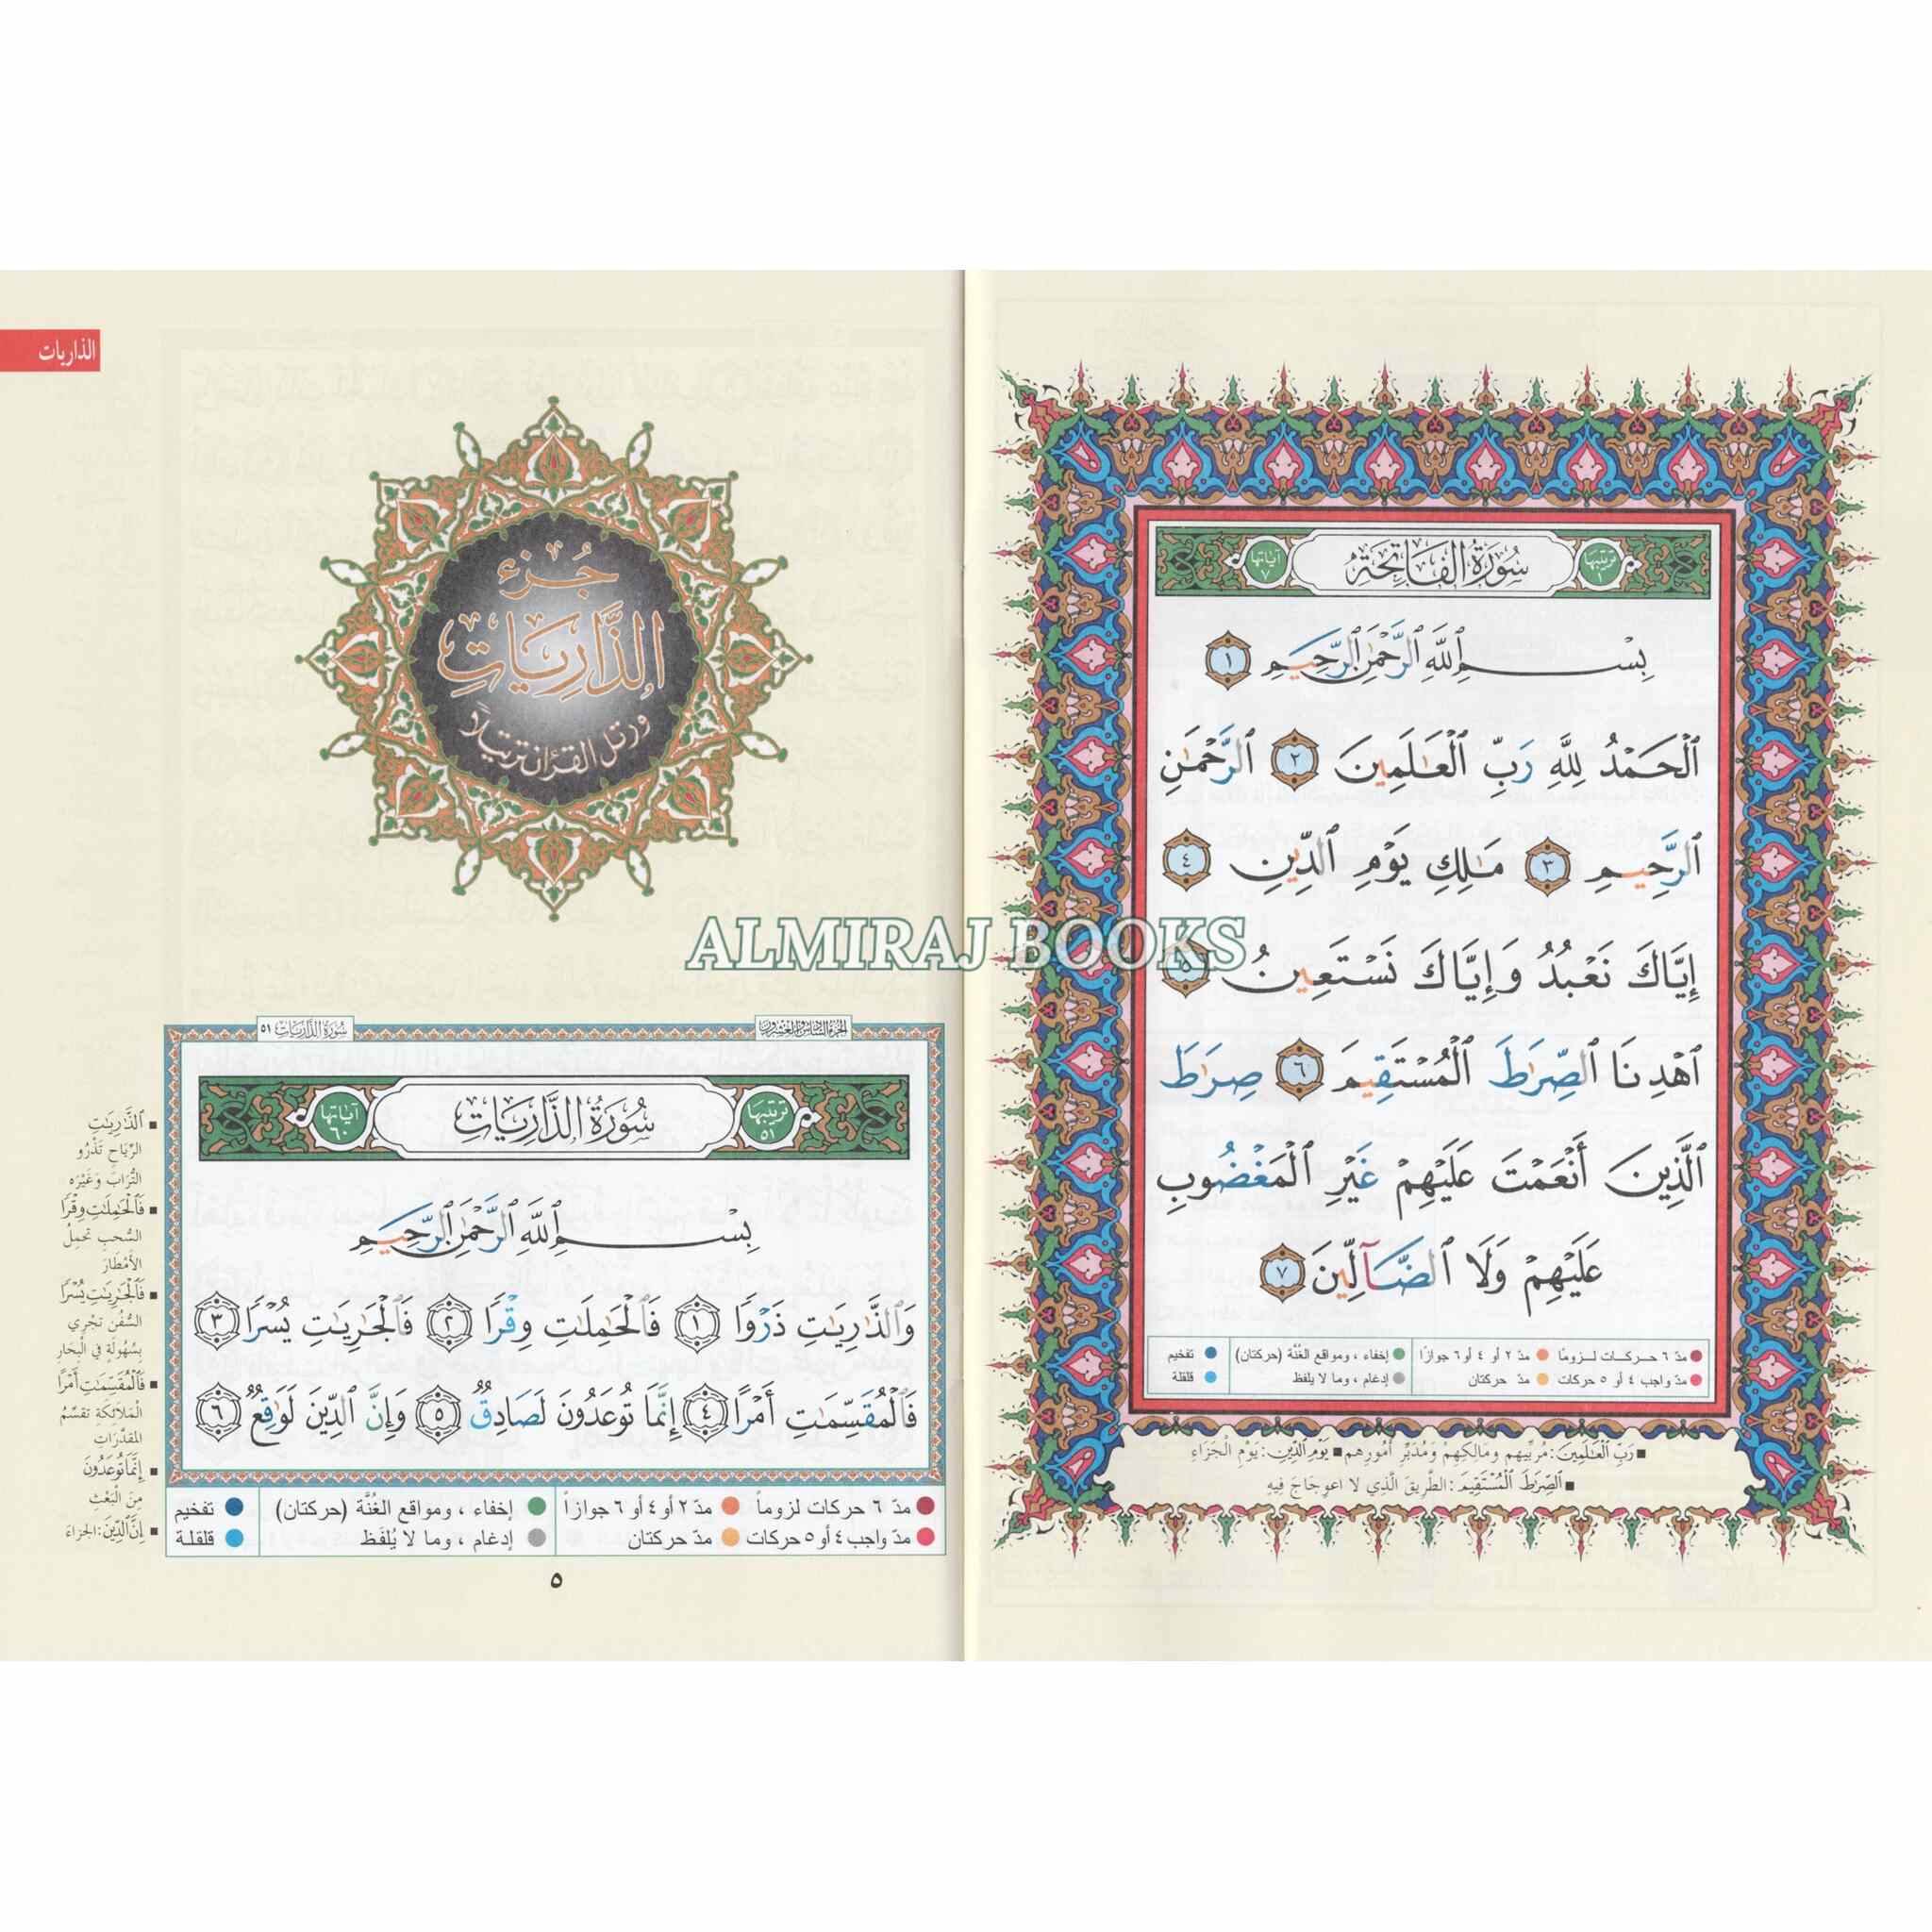 سُورَةُ الفَاتِحَةِ
ترتيبها ١
آياتها ٧
بِسْمِ ٱللَّهِ ٱلرَّحْمَٰنِ ٱلرَّحِيمِ ١
ٱلْحَمْدُ لِلَّهِ رَبِّ ٱلْعَٰلَمِينَ ٢ ٱلرَّحْمَٰنِ
ٱلرَّحِيمِ ٣ مَٰلِكِ يَوْمِ ٱلدِّينِ ٤
إِيَّاكَ نَعْبُدُ وَإِيَّاكَ نَسْتَعِينُ ٥
ٱهْدِنَا ٱلصِّرَٰطَ ٱلْمُسْتَقِيمَ ٦ صِرَٰطَ
ٱلَّذِينَ أَنْعَمْتَ عَلَيْهِمْ غَيْرِ ٱلْمَغْضُوبِ
عَلَيْهِمْ وَلَا ٱلضَّآلِّينَ ٧
مدّ ٦ حركات لزوما مدّ ٢ أو ٤ أو ٦ جوازا إخفاء ، ومواقع الغُنَّة (حركتان) تفخيم
مدّ واجب ٤ أو ٥ حركات مدّ حركتان إدغام ، وما لا يلفظ قلقلة
رَبِّ ٱلْعَٰلَمِينَ: مُرَبِّيهِم ومَالِكِهِمْ وَمُدَبِّرِ أُمُورِهِم يَوْمِ ٱلدِّينِ: يَوْمِ الْجَزَاءِ
ٱلصِّرَٰطَ ٱلْمُسْتَقِيمَ: الطَّرِيقَ الَّذِي لا اعوِجَاجَ فِيهِ
الذاريات
جُزء
الذَّارِيَاتِ
ورتل القرءان ترتيلاً
ALMIRAJ BOOKS
الجزء السادس والعشرون
سُورَةُ الذَّارِيَات ٥١
سُورَةُ الذَّارِيَاتِ
ترتيبها ٥١
آياتها ٦٠
بِسْمِ ٱللَّهِ ٱلرَّحْمَٰنِ ٱلرَّحِيمِ
وَٱلذَّٰرِيَٰتِ ذَرْوًا ١ فَٱلْحَٰمِلَٰتِ وِقْرًا ٢ فَٱلْجَٰرِيَٰتِ يُسْرًا ٣
فَٱلْمُقَسِّمَٰتِ أَمْرًا ٤ إِنَّمَا تُوعَدُونَ لَصَادِقٌ ٥ وَإِنَّ ٱلدِّينَ لَوَٰقِعٌ ٦
مدّ ٦ حركات لزوماً مدّ ٢ أو ٤ أو ٦ جوازاً إخفاء ، ومواقع الغُنَّة (حركتان) تفخيم
مدّ واجب ٤ أو ٥ حركات مدّ حركتان إدغام ، وما لا يُلفَظ قلقلة
ٱلذَّٰرِيَٰتِ
الرِّيَاحِ تَذْرُو
التُّرَابَ وَغَيْرَه
فَٱلْحَٰمِلَٰتِ وِقْرًا
السُّحبِ تحْمِلُ
الأَمْطَارَ
فَٱلْجَٰرِيَٰتِ يُسْرًا
السُّفُن تجْرِي
بِسُهُولَةٍ فِي الْبِحَارِ
فَٱلْمُقَسِّمَٰتِ أَمْرًا
الْمَلَائِكَةِ تقسِّمُ
المقدَّرَاتِ
إِنَّمَا تُوعَدُونَ
مِنَ الْبَعْثِ
إِنَّ ٱلدِّينَ: الجزاءَ
٥